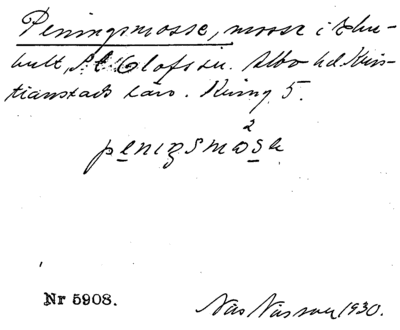 Peningsmosse, mosse i Ehu-
bult, St Olofs sn. Albo hd Kris-
tianstads län. Kring 5.
penigsmose
2
Nr 5908.
Nils Nilsson 1930.